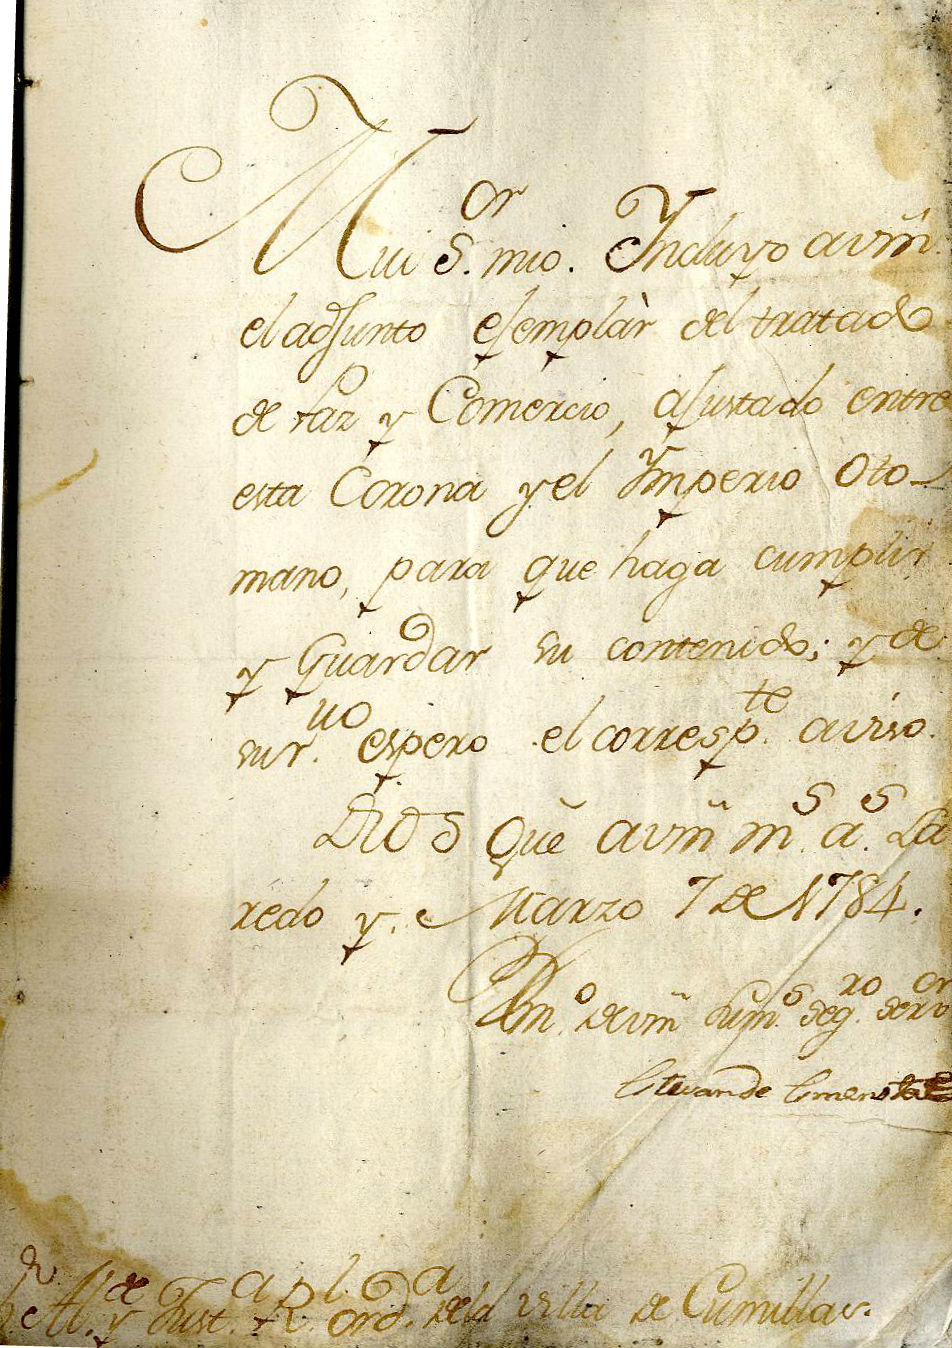 Mui S.or mio. Yncluyo a vm̃
el adjunto ejemplàr del tratado
de Paz y Comercio, ajustado entre
esta Corona y el Ymperio Oto-
mano, para que haga cumplir
y Guardar su contenido; y de
su r.uo espero el corresp.te aviso.
Dios Gũe a vm̃ m.s a.s La
redo y Marzo 7 de 1784.
de vm̃ seg.ro
Estevan de
Al.de y Just.a R.l ord.a de la villa de Cumillas.